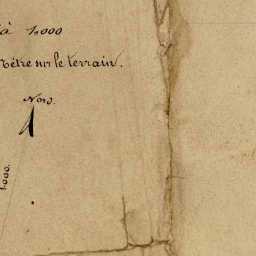 à 1.000
Mètre sur le terrain.
Nord.
1.000.